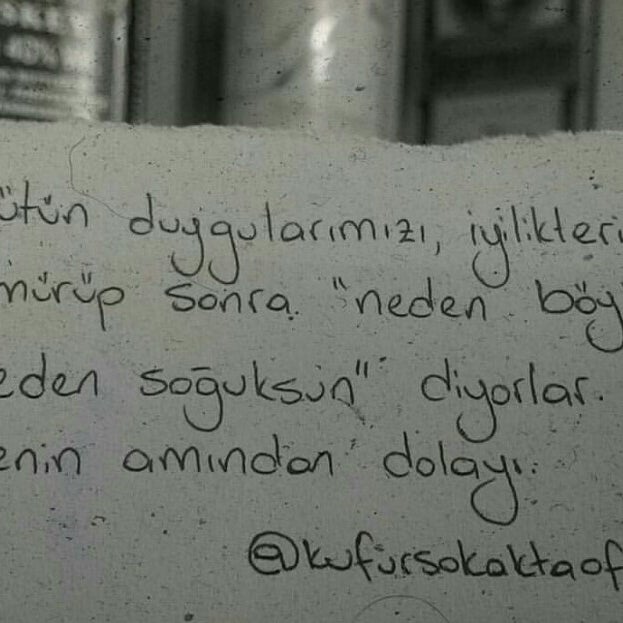 40%
ütün duygularımızı, iyilikleri
mürüp sonra "neden böy
eden soğuksun" diyorlar.
enin amından dolayı.
@kufursokaktaof